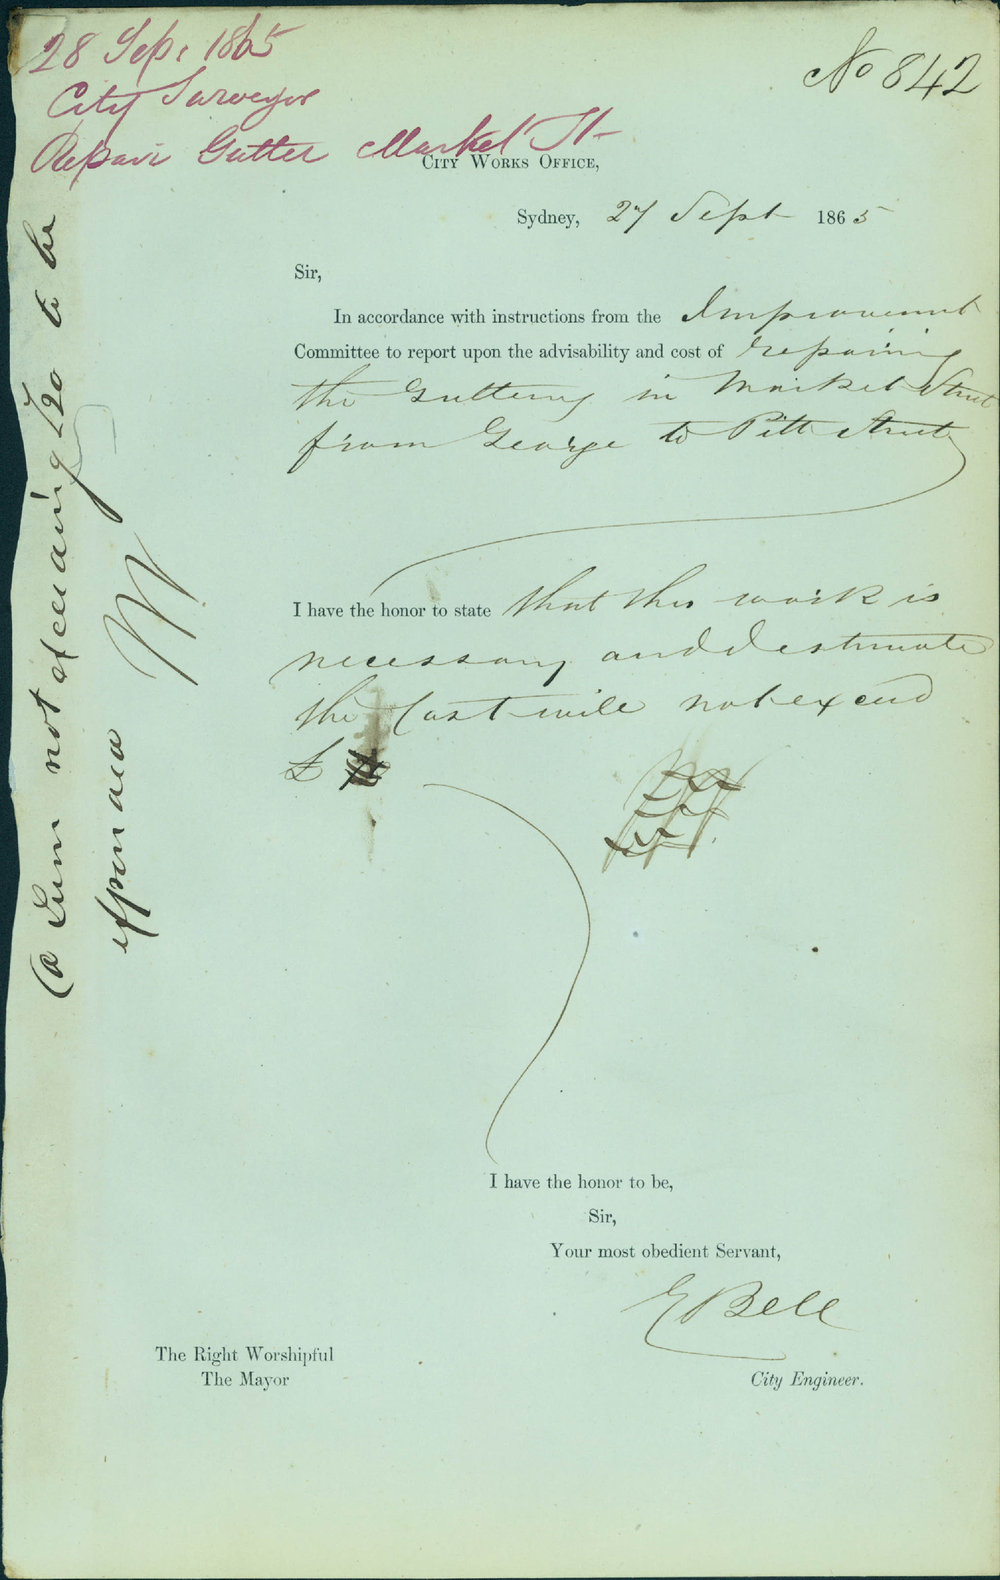 28 Sep: 1865
City Surveyor
Repair Gutter Market St
No 842
City Works Office,
Sydney, 27 Sept 1865
Sir,
In accordance with instructions from the Improvement
Committee to report upon the advisability and cost of repairing
the Guttering in Market Street
from George to Pitt Street
I have the honor to state that this work is
necessary and I estimate
the Cost will not exceed
£
I have the honor to be,
Sir,
Your most obedient Servant,
E Bell
City Engineer.
The Right Worshipful
The Mayor
(a Sum not exceeding £20 to be
expended